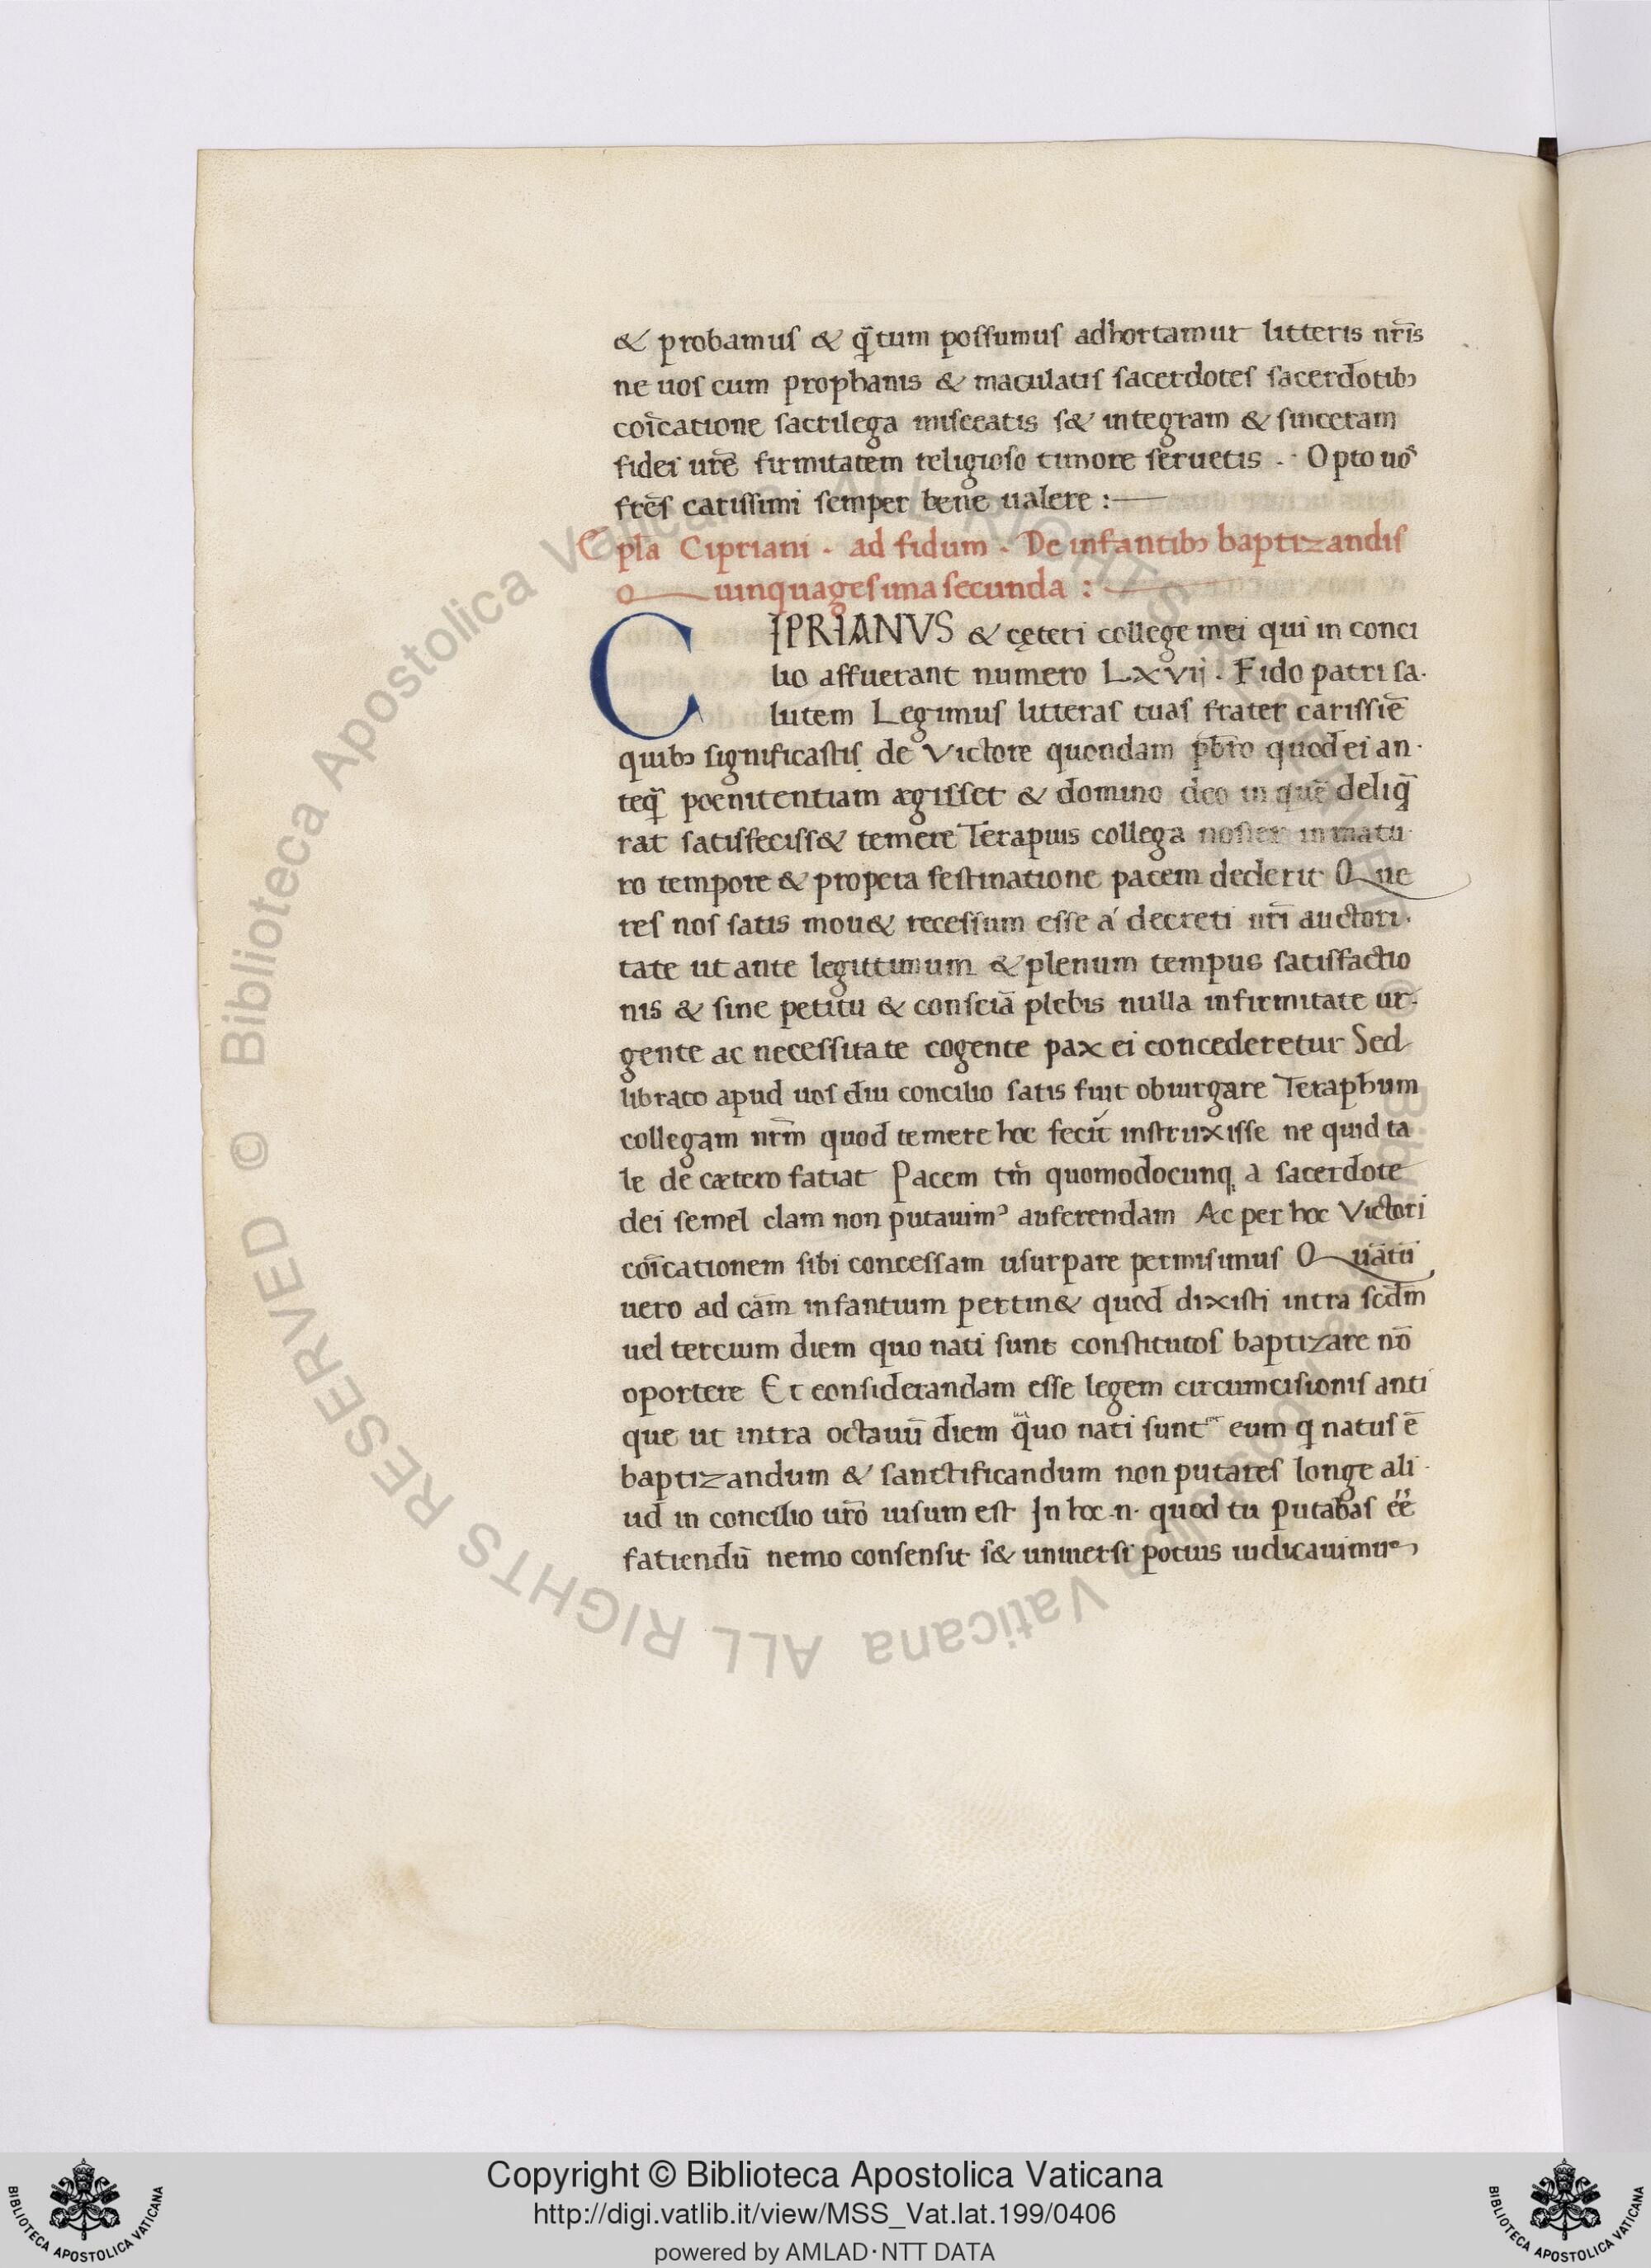 & probamuſ & q̄tum poſſumuſ adhortamur litteris nr̄is
ne uoſ cum prophanis & maculatiſ ſacerdoteſ ſacerdotibꝫ
coīcatione ſacrilega miſceatis ſ& integram & ſinceram
fidei ur̄e firmitatem religioſo timore ſeruetis . · Opto uoſ
fr̄eſ cariſſimi ſemper bene ualere :—
Epl̄a Cipriani . ad fidum . De infantibꝫ baptizandiſ
Quinquageſima ſecunda :—
CIPRIANVS & cęteri college mei qui in conci
lio affuerant numero LXVII . Fido patri ſa.
lutem Legimuſ litteraſ tuaſ frater cariſſiē
quibꝫ ſignificaſtiſ de Victore quondam pb̄ro quod ei an.
teq̄ poenitentiam ægiſſet & domino deo in quē deliq̄
rat ſatiſfeciſſ& temere Terapius collega noſter inmatu.
ro tempore & propera feſtinatione pacem dederit Que
reſ noſ ſatis mou& receſſum eſſe á decreti nr̄i auctori.
tate ut ante legittimum & plenum tempus ſatiſfactio
nis & ſine petitu & conſciā plebis nulla infirmitate ur.
gente ac neceſſitate cogente pax ei concederetur Sed
librato apud uoſ diu concilio ſatis fuit obiurgare Teraphum
collegam nr̄m quod temere hoc fecit́ inſtruxiſſe ne quid ta
le de cætero fatiat Pacem tm̄ quomodocunq; a ſacerdote
dei ſemel clam non putauimꝰ auferendam Ac per hoc Victori
coīcationem ſibi conceſſam uſurpare permiſimuſ Quātū
uero ad cām infantium pertin& quod dixiſti intra ſcd̄m
uel tercium diem quo nati ſunt conſtitutoſ baptizare nō
oportere Et conſiderandam eſſe legem circumciſioniſ anti
que ut intra octauū diem quo nati ſunt eum q natuſ ē
baptizandum & ſanctificandum non putareſ longe ali.
ud in concilio ur̄o uiſum eſt In hoc .n. quod tu putabaſ ēē
fatiendū nemo conſenſit ſ& uniuerſi potius iudicauimus
© Biblioteca Apostolica Vaticana ALL RIGHTS RESERVED
© Biblioteca Apostolica Vaticana ALL RIGHTS RESERVED
Copyright © Biblioteca Apostolica Vaticana
http://digi.vatlib.it/view/MSS_Vat.lat.199/0406
powered by AMLAD·NTT DATA
BIBLIOTECA APOSTOLICA VATICANA
BIBLIOTECA APOSTOLICA VATICANA